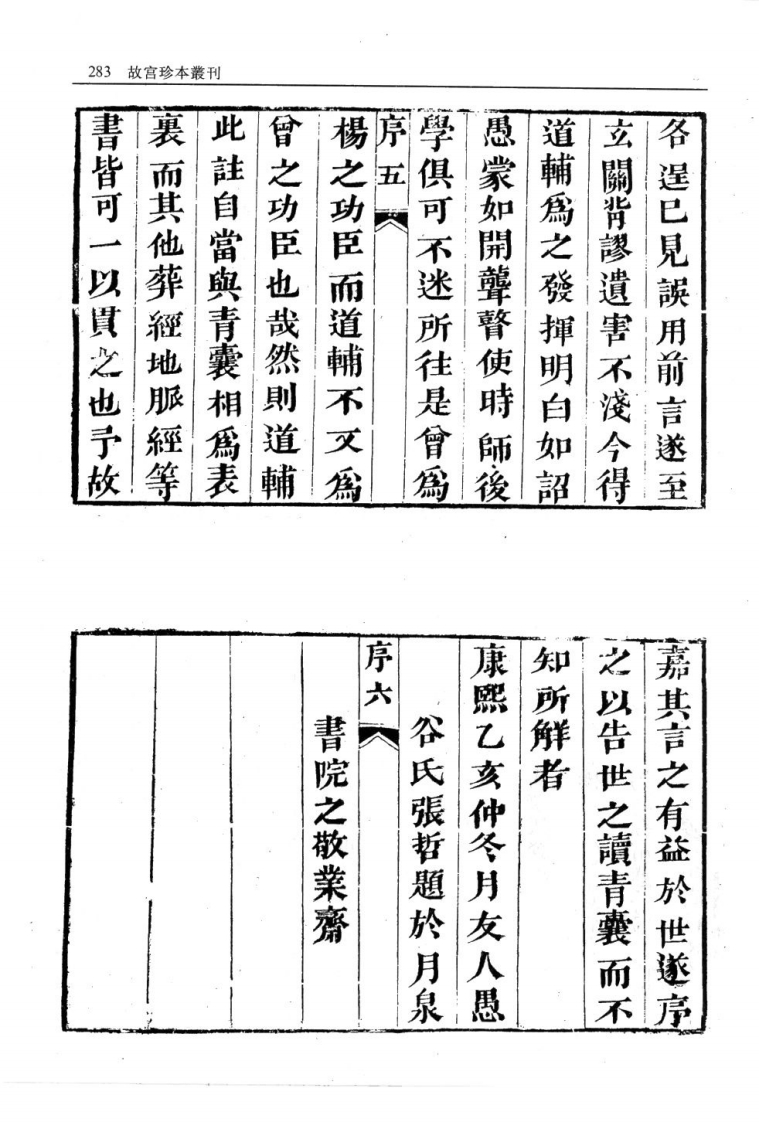 283 故宮珍本叢刊
各逞巳見誤用前言遂至
玄關背謬遺害不淺今得
道輔爲之發揮明白如詔
愚蒙如開聾瞽使時師後
學俱可不迷所往是曾爲
序五
楊之功臣而道輔不又爲
曾之功臣也哉然則道輔
此註自當與青囊相爲表
裏而其他葬經地脈經等
書皆可一以貫之也予故
嘉其言之有益於世遂序
之以告世之讀青囊而不
知所解者
康熙乙亥仲冬月友人愚
谷氏張哲題於月泉
序六
書院之敬業齋